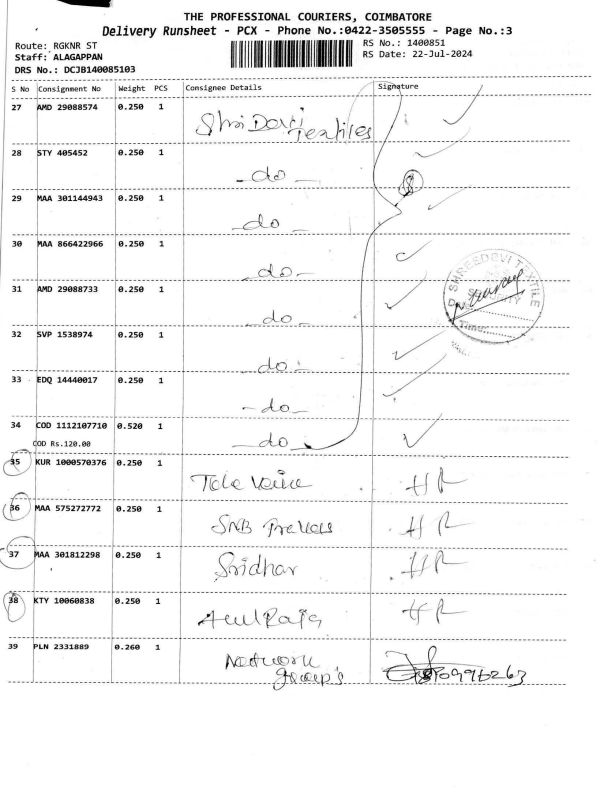 THE PROFESSIONAL COURIERS, COIMBATORE
Delivery Runsheet - PCX - Phone No.:0422-3505555 - Page No.:3
Route: RGKNR ST RS No.: 1400851
Staff: ALAGAPPAN RS Date: 22-Jul-2024
DRS No.: DCJB140085103
S No Consignment No Weight PCS Consignee Details Signature
27 AMD 29088574 0.250 1 Shri Devi Textiles
28 STY 405452 0.250 1 -do-
29 MAA 301144943 0.250 1 -do-
30 MAA 866422966 0.250 1 -do-
31 AMD 29088733 0.250 1 -do-
32 SVP 1538974 0.250 1 -do-
33 EDQ 14440017 0.250 1 -do-
34 COD 1112107710 0.520 1 -do-
COD Rs.120.00
35 KUR 1000570376 0.250 1 HR
36 MAA 575272772 0.250 1 SNB HR
37 MAA 301812298 0.250 1 Sridhar HR
38 KTY 10060838 0.250 1 HR
39 PLN 2331889 0.260 1 Network
group's
SHREEDEVI TEXTILE
SECURITY
Time